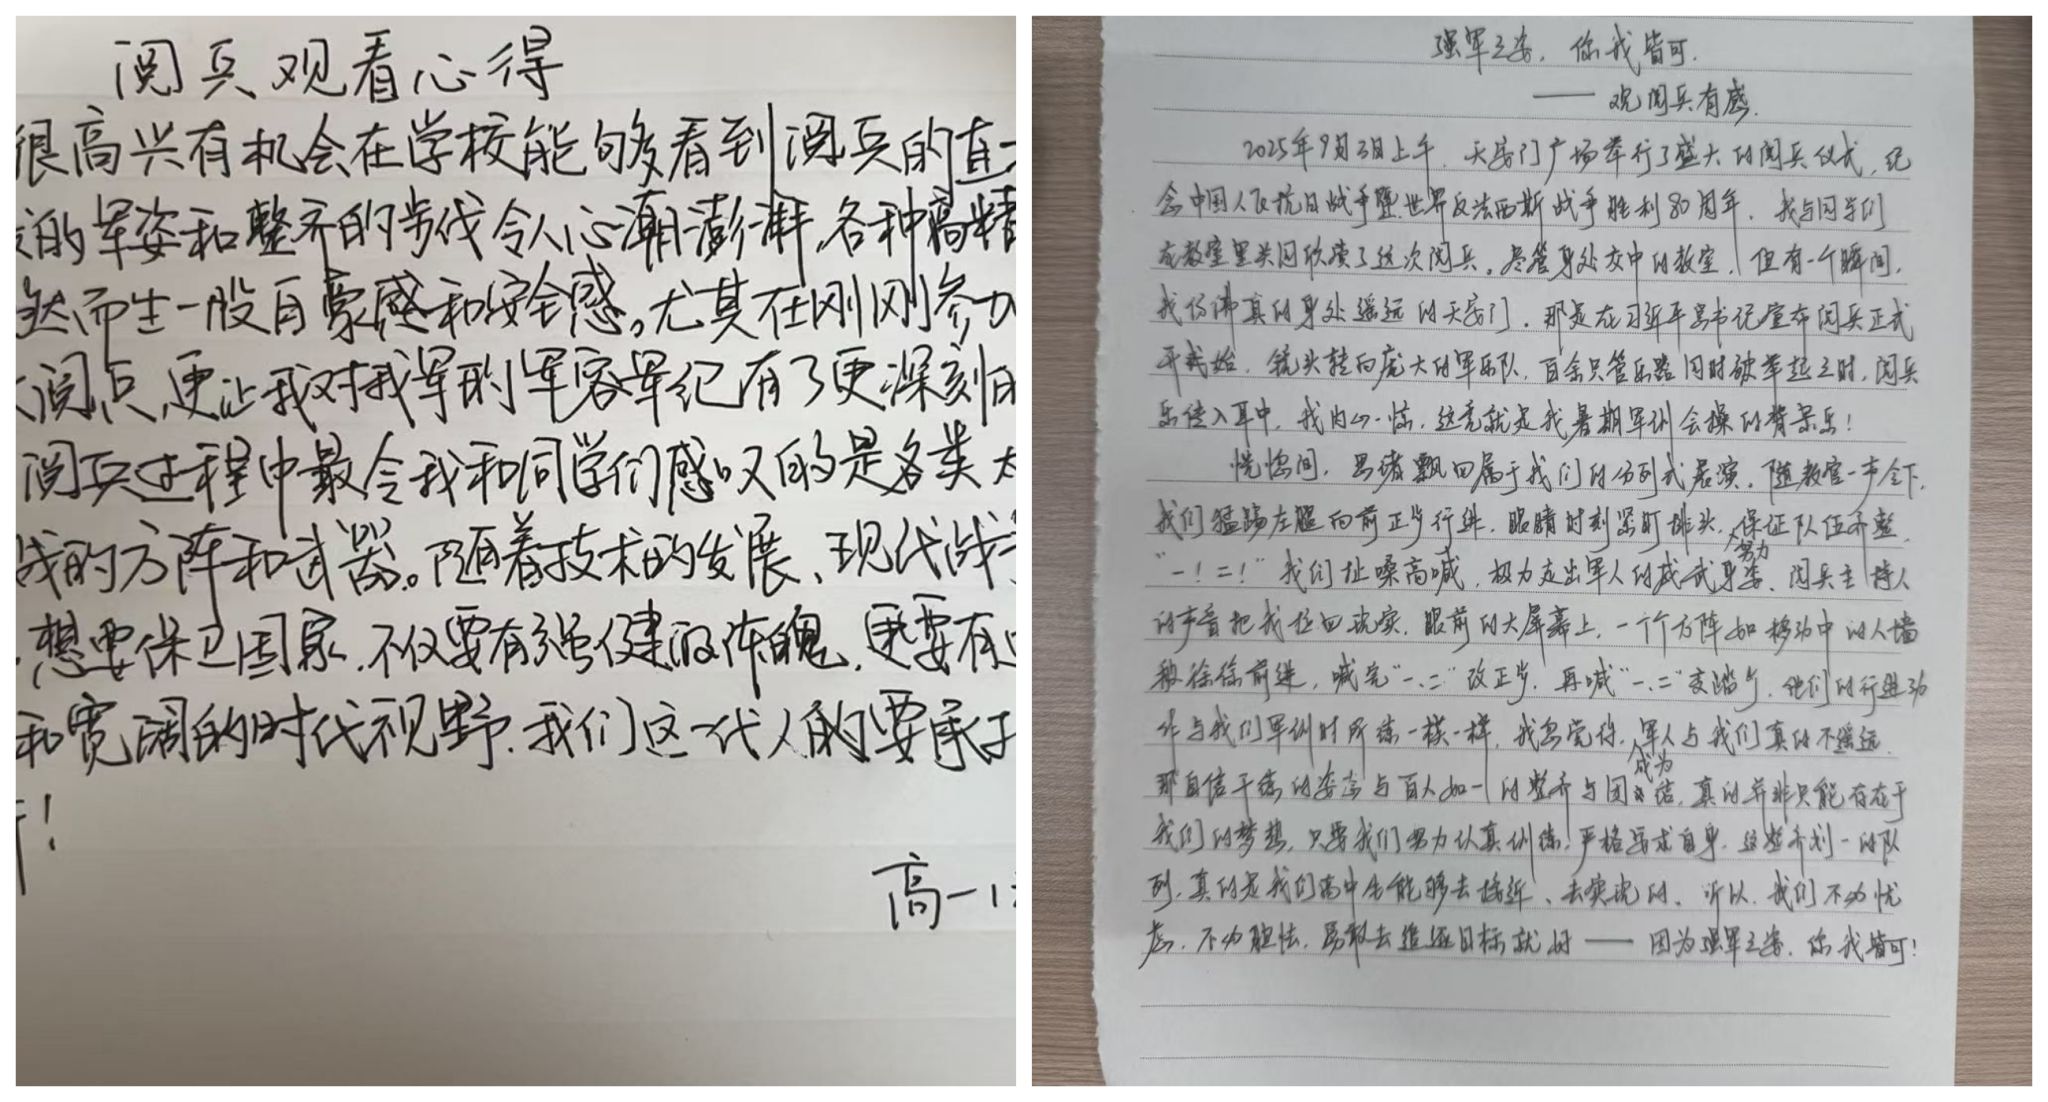 阅兵观看心得
很高兴有机会在学校能够看到阅兵的直
的军姿和整齐的步伐令人心潮澎湃,各种高精
然而生一股自豪感和安全感。尤其在刚刚参加
阅兵,更让我对我军的军容军纪有了更深刻的
阅兵过程中最令我和同学们感叹的是各类
战的方阵和武器。随着技术的发展、现代战
,想要保卫国家,不仅要有强健的体魄,更要有
和宽阔的时代视野,我们这一代人的要承
!
高一
强军之姿,你我皆可.
——观阅兵有感.
2025年9月3日上午,天安门广场举行了盛大的阅兵仪式,纪
念中国人民抗日战争暨世界反法西斯战争胜利80周年,我与同学们
在教室里共同欣赏了这次阅兵。尽管身处交中的教室,但有一个瞬间,
我仿佛真的身处遥远的天安门,那是在习近平总书记宣布阅兵正式
开始,镜头转向庞大的军乐队,百余只管乐器同时被举起之时,阅兵
乐传入耳中,我内心一惊,这竟就是我暑期军训会操的背景乐!
恍惚间,思绪飘回属于我们的分列式展演,随教官一声令下,
我们猛踢左腿向前正步行进,眼睛时刻紧盯排头,努力保证队伍齐整,
“一!二!”我们扯嗓高喊,极力走出军人的威武身姿,阅兵主持人
的声音把我拉回现实,眼前的大屏幕上,一个个方阵如移动中的人墙
般徐徐前进,喊完“一、二”改正步,再喊“一、二”变踏步,他们的行进动
作与我们军训时所练一模一样,我忽觉得,军人与我们真的不遥远,
那自信干练的姿态与百人如一的整齐与团结,真的并非只能存在于
成为
我们的梦想,只要我们努力认真训练,严格要求自身,这整齐划一的队
列,真的是我们高中生能够去接近、去实现的,所以,我们不必忧
虑,不必胆怯,勇敢去追逐目标就好——因为强军之姿,你我皆可!